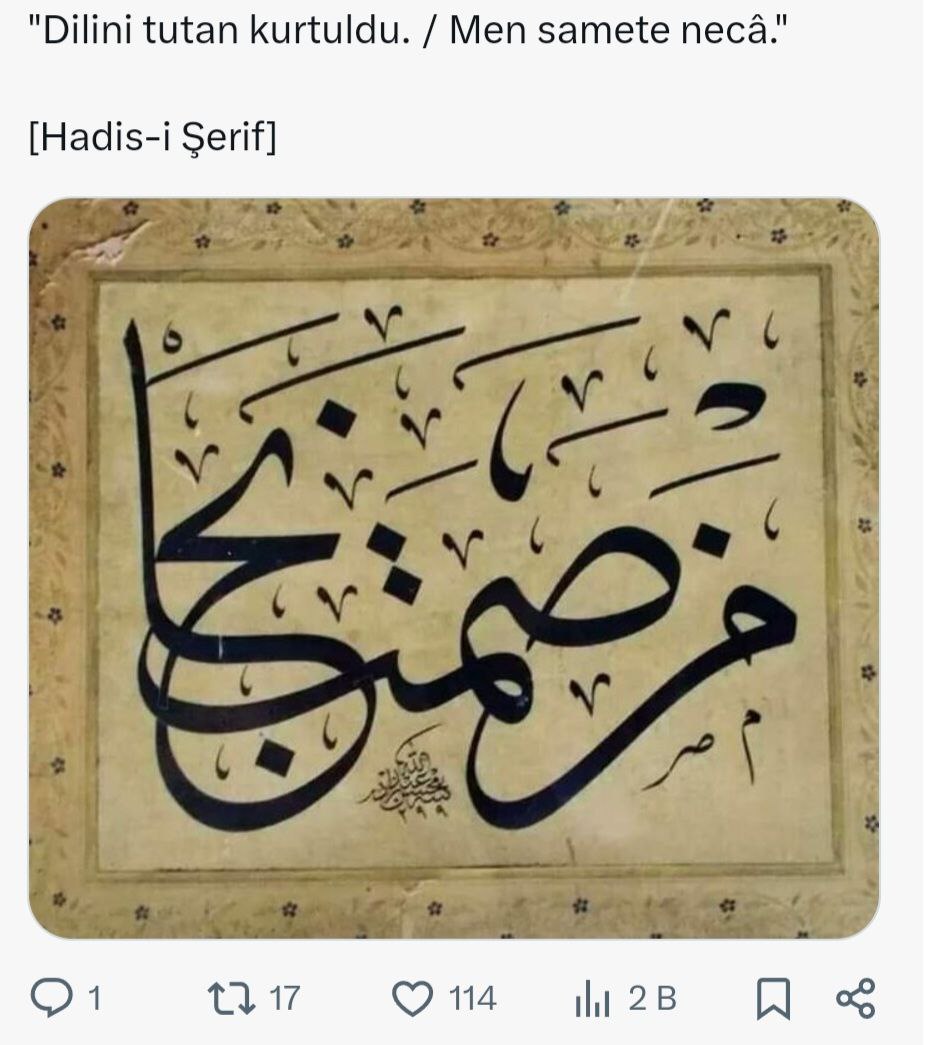 "Dilini tutan kurtuldu. / Men samete necâ."
[Hadis-i Şerif]
من صمت نجا
1
17
114
2 B